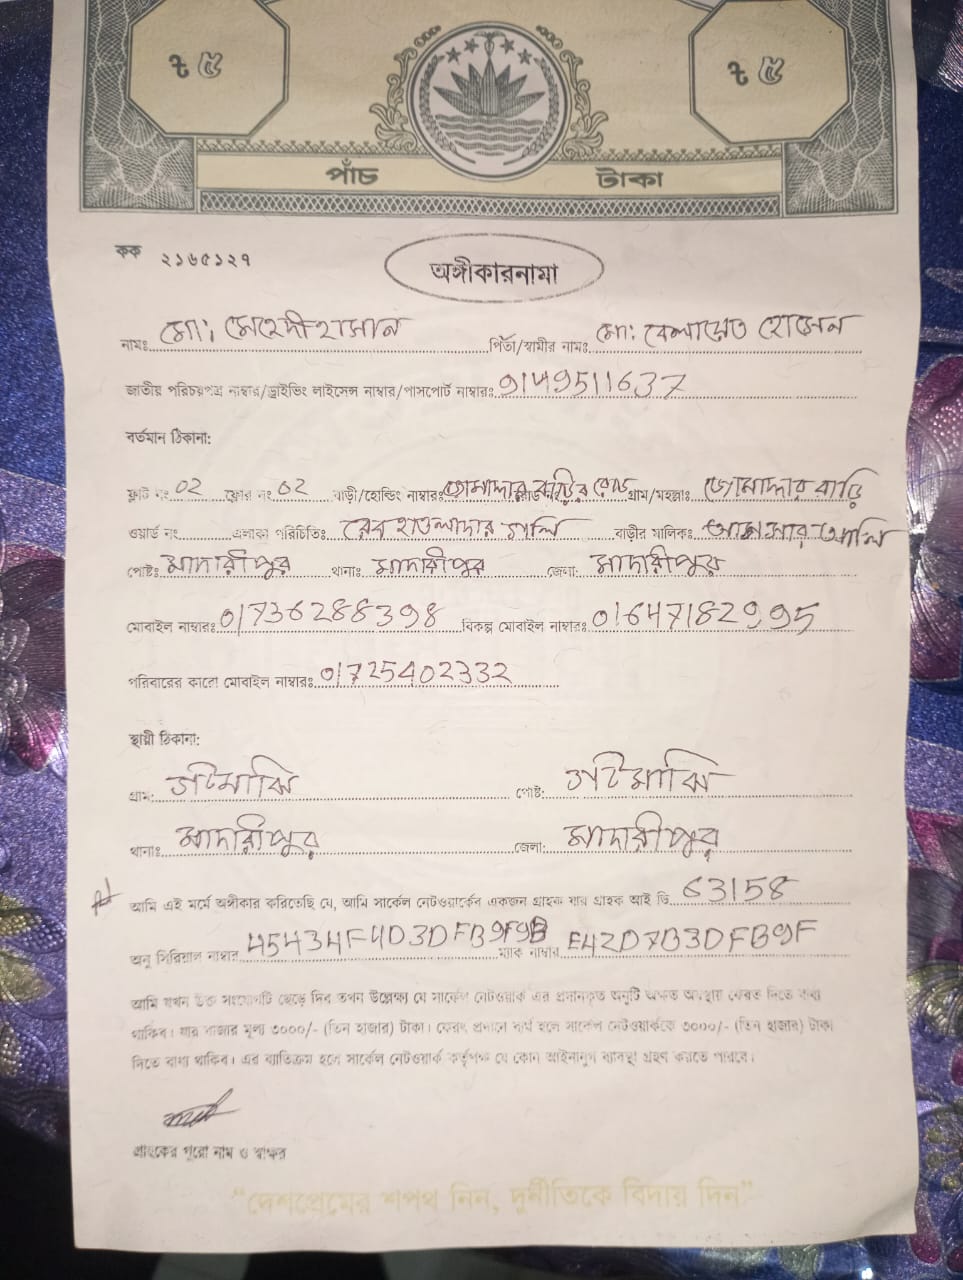 ৳ ৫ ৳ ৫
পাঁচ টাকা
কক ২১৬৫১২৭
অঙ্গীকারনামা
নামঃ মো: মেহেদী হাসান পিতা/স্বামীর নামঃ মো: বেলায়েত হোসেন
জাতীয় পরিচয়পত্র নাম্বার/ড্রাইভিং লাইসেন্স নাম্বার/পাসপোর্ট নাম্বারঃ 9149511637
বর্তমান ঠিকানা:
ফ্লাট নং 02 ফ্লোর নং 02 বাড়ী/হোল্ডিং নাম্বারঃ গ্রাম/মহল্লাঃ জোমাদার বাড়ি
ওয়ার্ড নং এলাকা পরিচিতিঃ হাওলাদার গলি বাড়ীর মালিকঃ আলি
পোষ্টঃ মাদারীপুর থানাঃ মাদারীপুর জেলা: মাদারীপুর
মোবাইল নাম্বারঃ 01736288398 বিকল্প মোবাইল নাম্বারঃ 01647182995
পরিবারের কারো মোবাইল নাম্বারঃ 01725402332
স্থায়ী ঠিকানা:
গ্রাম: ঘটমাঝি পোষ্ট: ঘটমাঝি
থানাঃ মাদারীপুর জেলা: মাদারীপুর
আমি এই মর্মে অঙ্গীকার করিতেছি যে, আমি সার্কেল নেটওয়ার্কের একজন গ্রাহক যার গ্রাহক আই ডি 63158
অনু সিরিয়াল নাম্বার 45434F4D3DFB9F9B ম্যাক নাম্বার E42D7B3DFB9F
আমি যখন উক্ত সংযোগটি ছেড়ে দিব তখন উল্লেক্ষ্য যে সার্কেল নেটওয়ার্ক এর প্রদানকৃত অনুটি অক্ষত অবস্থায় ফেরত দিতে বাধ্য
থাকিব। যার বাজার মূল্য ৩০০০/- (তিন হাজার) টাকা। ফেরৎ প্রদানে ব্যর্থ হলে সার্কেল নেটওয়ার্ককে ৩০০০/- (তিন হাজার) টাকা
দিতে বাধ্য থাকিব। এর ব্যতিক্রম হলে সার্কেল নেটওয়ার্ক কর্তৃপক্ষ যে কোন আইনানুগ ব্যবস্থা গ্রহণ করতে পারবে।
গ্রাহকের পুরো নাম ও স্বাক্ষর
"দেশপ্রেমের শপথ নিন, দুর্নীতিকে বিদায় দিন"